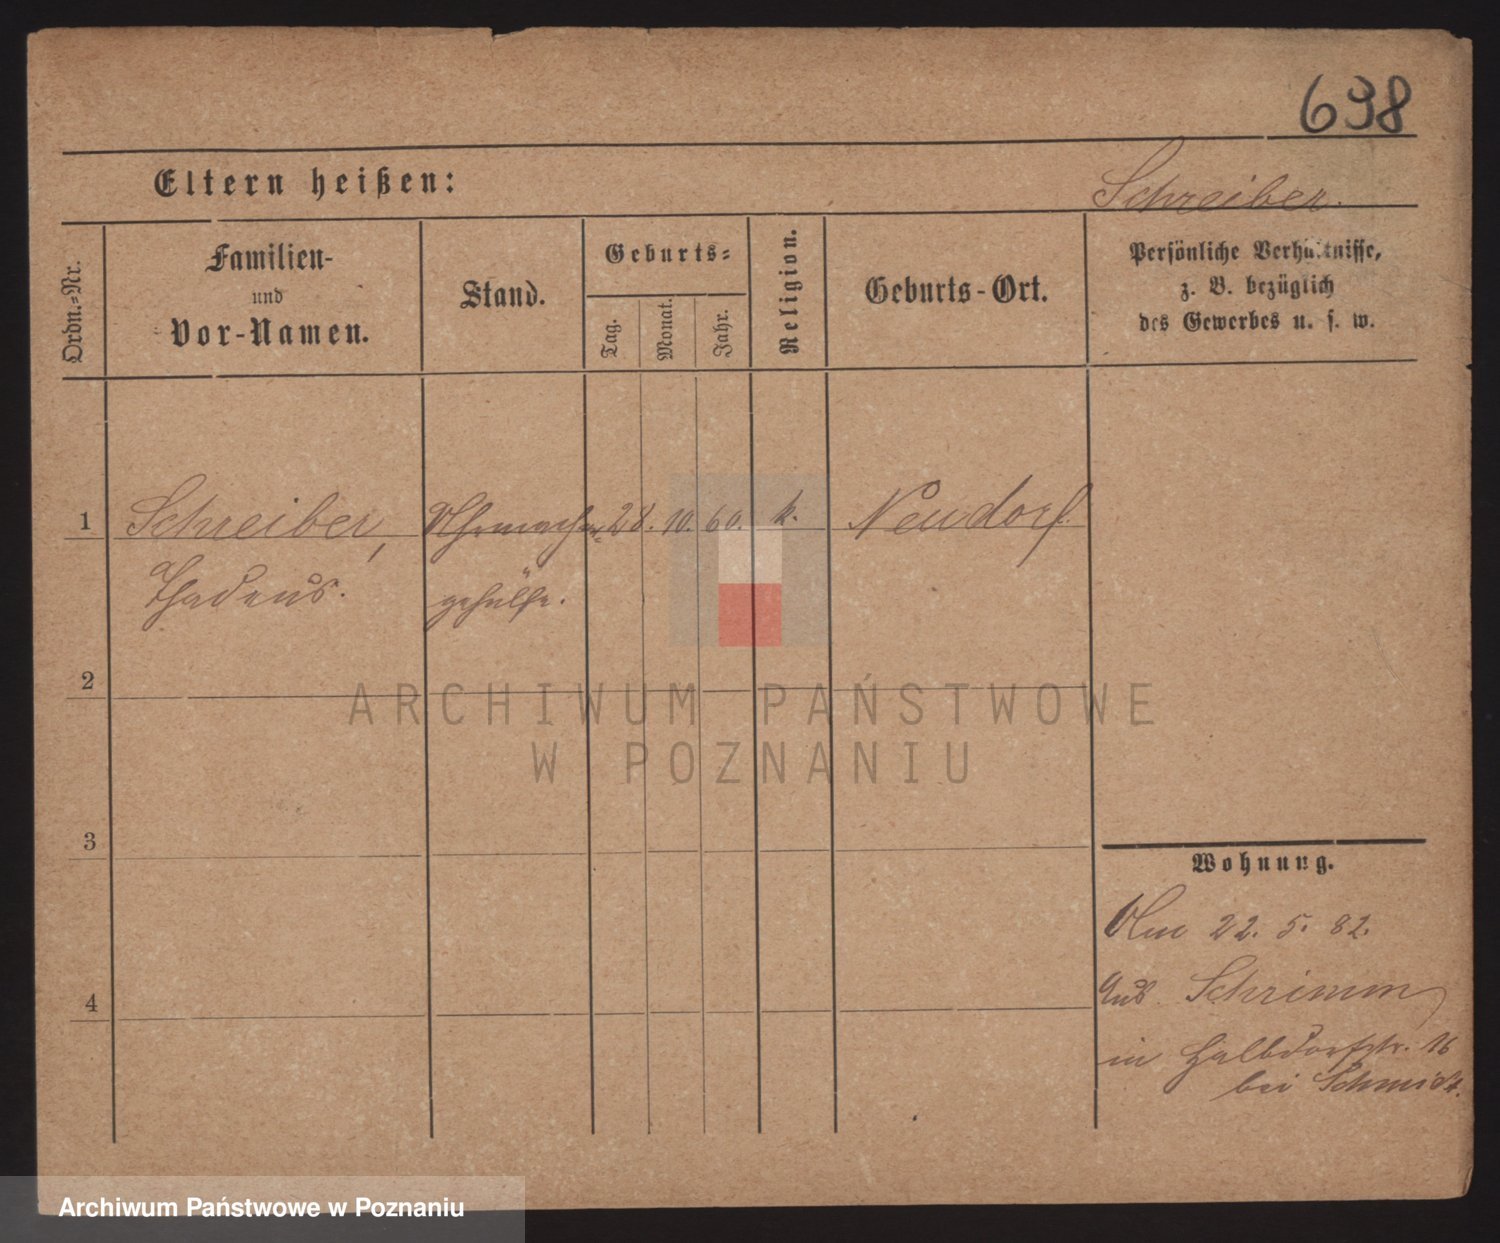 698
Eltern heißen:
Schreiber.
Ordn.-Nr.
Familien-
und
Vor-Namen.
Stand.
Geburts-
Tag.
Monat.
Jahr.
Religion.
Geburts-Ort.
Persönliche Verhältnisse,
z. B. bezüglich
des Gewerbes u. s. w.
1 Schreiber, Uhrmacher- 28. 10. 60. k. Neudorf.
Thadeus. gehülfe.
2
3
4
Wohnung.
Am 22. 5. 82.
aus Schrimm
in Halbdorfstr. 16
bei Schmidt.
ARCHIWUM PAŃSTWOWE
W POZNANIU
Archiwum Państwowe w Poznaniu